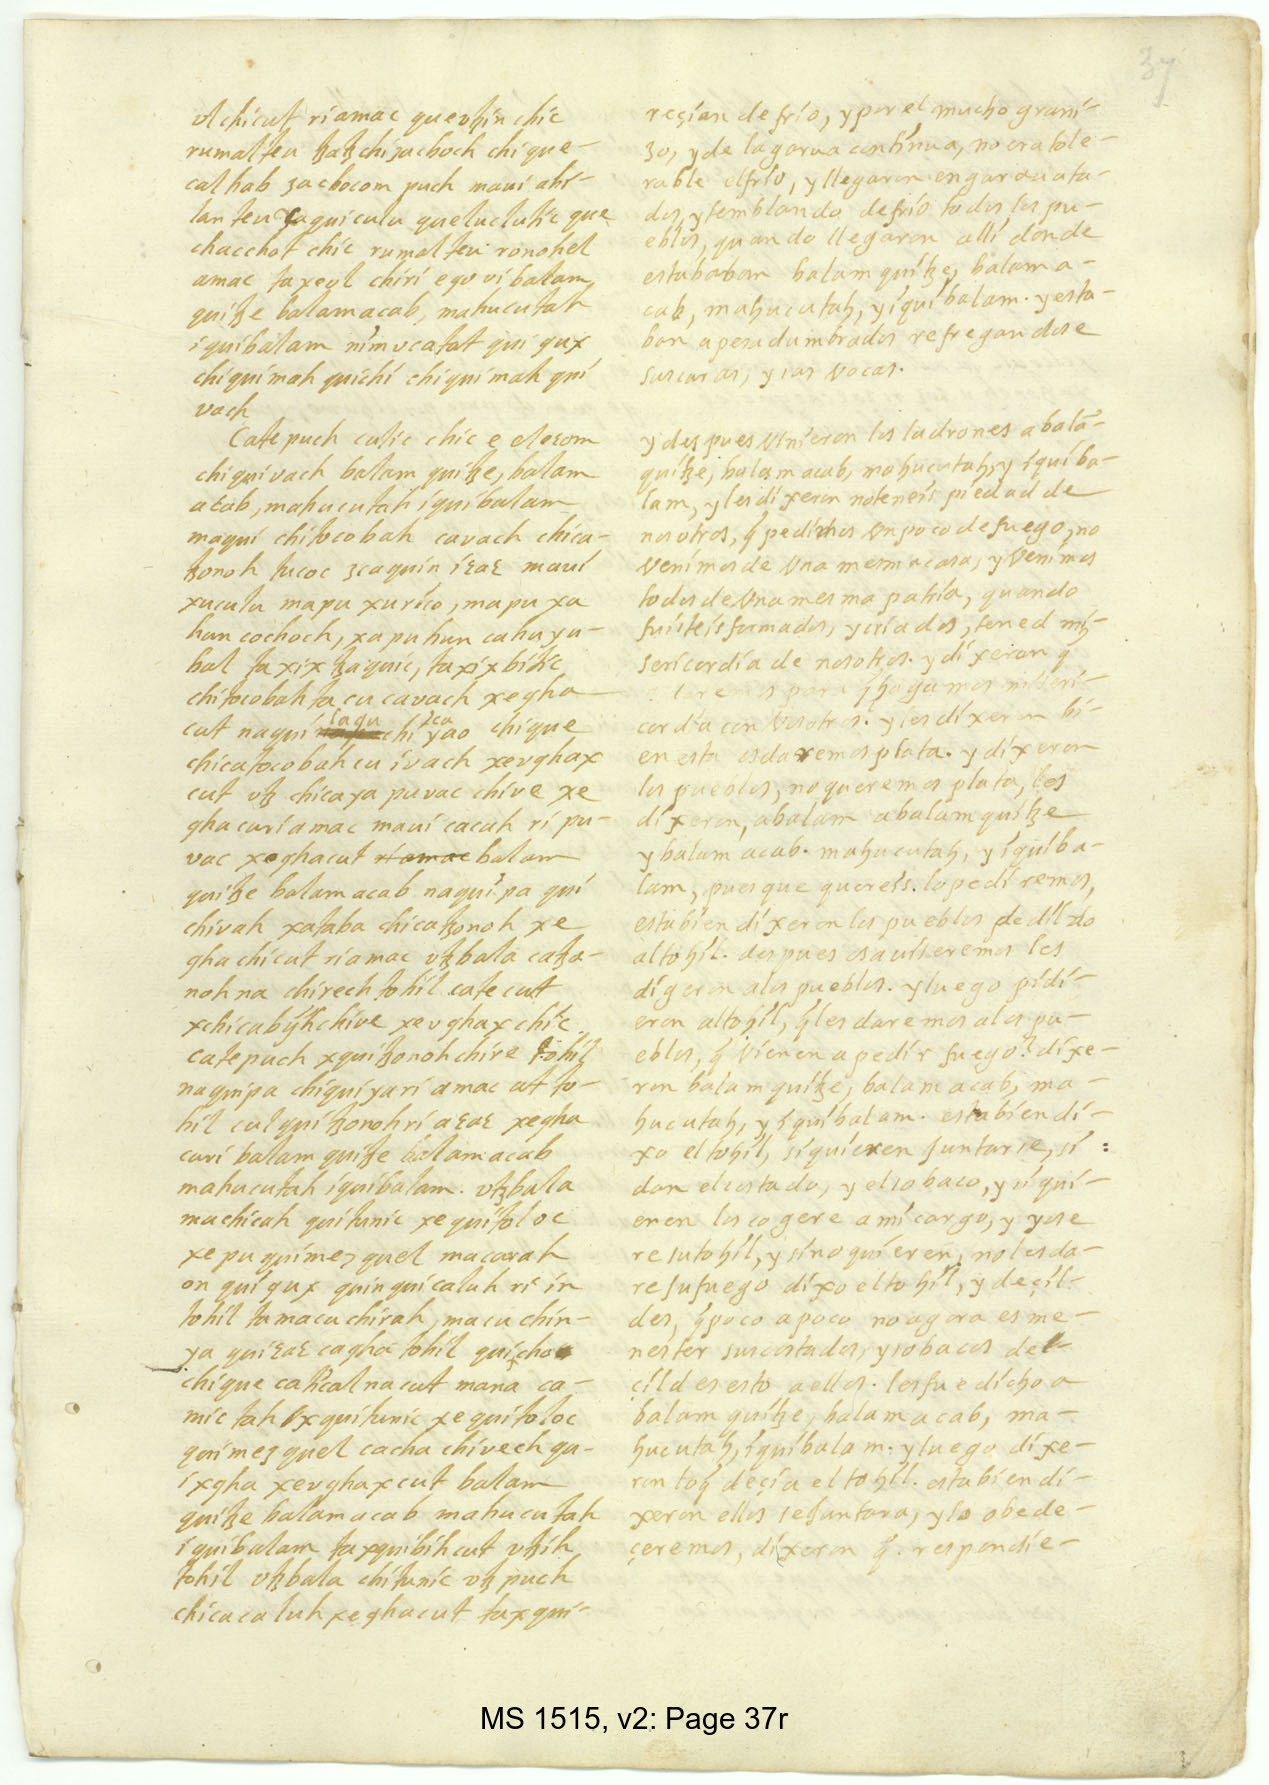 37
vl chicut ri amac quevꜩin chic
rumal teu ꜩaꜩ chi zacboch chi que-
cal hab zacbocom puch maui ahi-
lan teu xaquiculu queluclutic que
chacchot chic rumal teu ronohel
amac ta xevl chiri ego vi balam
quiꜩe balam acab, mahucutah
iquibalam nim vcatat qui qux
chiquimah quichi chiquimah qui
vach
Catepuch culic chic e elezom
chiquivach balam quiꜩe, balam
acab, mahucutah iquibalam
maqui chitocobah cavach chica-
ꜩonoh tucoc zcaquin iꜫaꜫ maui
xuculu mapu xurico, mapu xa
hun cochoch, xapu hun cahuyu-
bal ta xix ꜩaquic, ta xix bitic
chitocobah ta cu cavach xegha
cut naqui laqu chi zca yao chique
chicatocobah cu ivach xevghax
cut vꜩ chicaya puvac chive xe
gha curi amac maui cacah ri pu-
vac xeghacut ri amac balam
quiꜩe balam acab naqui pa qui
chivah xataba chicaꜩonoh xe
gha chicut ri amac vꜩbala caꜩo-
noh na chirech tohil catecut
xchicabijh chive xevghax chic
catepuch xquiꜩonoh chire tohil
naquipa chiquiya ri amac at to-
hil culquiꜩonoh ri aꜫaꜫ xegha
curi balam quiꜩe balam acab
mahucutah iquibalam. vꜩbala
ma chicah quitunic xe quitoloc
xe pu quimezquel ma cavah
on qui qux quinquicaluh ri in
tohil ta macu chirah, macu chin-
ya qui ꜫaꜫ cagha tohil
chique cahcal na cut mana ca-
mic tah ix quitunic xe quitoloc
quimezquel cacha chivech qu-
ixgha xevghax cut balam
quiꜩe balam acab mahucutah
iquibalam ta xquibih cut vꜩih
tohil vꜩbala chitunic vꜩ puch
chicacaluh xeghacut taxqui-
reçian de frio, y por el mucho grani-
zo, y de la garua continua, no era tole-
rable el frio, y llegaron engarauata-
dos, y temblando de frio todos los pu-
eblos, quando llegaron alli donde
estababan balam quiꜩe, balam a-
cab, mahucutah, y iquibalam. y esta-
ban apesadumbrados refregandose
sus caras, y sus vocas.
y despues vinieron los ladrones a balã-
quiꜩe, balam acab, mahucutah, y iquiba-
lam, y les dixeron no teneis piedad de
nosotros, q̃ pedimos vn poco de fuego, no
venimos de vna mesma casa, y venimos
todos de vna mesma patria, quando
fuisteis formados, y criados, tened mi-
sericordia de nosotros. y dixeron q̃
daremos para q̃ hagamos miseri-
cordia con vosotros. y les dixeron bi-
en esta os daremos plata. y dixeron
los pueblos, no queremos plata, les
dixeron, a balam a balam quiꜩe
y balam acab. mahucutah, y iquiba-
lam, pues que quereis. lo pediremos,
esta bien dixeron los pueblos pedildo
al tohil. despues os auiseremos les
digeron a los pueblos. y luego pidi-
eron al tohil, q̃ les daremos a los pu-
eblos, q̃ vienen a pedir fuego? dixe-
ron balam quiꜩe, balam acab, ma-
hucutah, y iquibalam. esta bien di-
xo el tohil, si quieren juntarse, si :
dan el costado, y el sobaco, y si qui-
eren los cogere a mi cargo, y yo se
re su tohil, y si no quieren, no les da-
re su fuego dixo el tohil, y deçil-
des, q̃ poco a poco no agora es me-
nester sus costados, y sobacos de-
çildes esto a ellos. les fue dicho a
balam quiꜩe, balam acab, ma-
hucutah, iquibalam. y luego dixe-
ron toh deçia el tohil. esta bien di-
xeron ellos se juntara, y lo obede-
çeremos, dixeron q̃. respondie-
MS 1515, v2: Page 37r